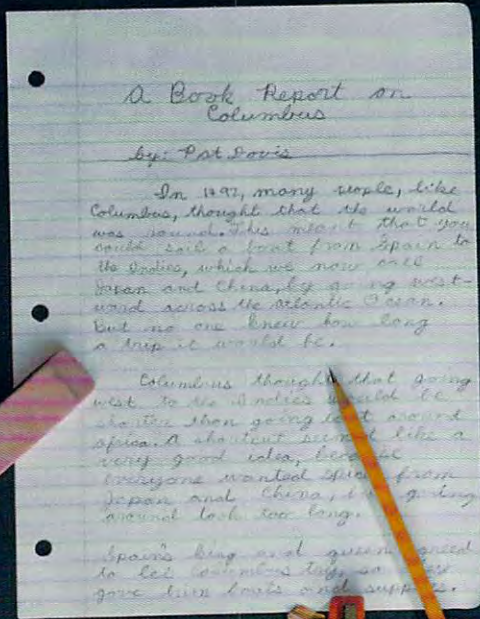 A Book Report on
Columbus
by: Pat Davis
In 1492, many people, like
Columbus, thought that the world
was round. This meant that you
could sail a boat from Spain to
the Indies, which we now call
Japan and China, by going west-
ward across the Atlantic Ocean.
But no one knew how long
a trip it would be.
Columbus thought that going
west to the Indies would be
shorter than going east around
Africa. A shortcut seemed like a
very good idea, because
everyone wanted spices from
Japan and China, but going
around took too long.
Spain's king and queen agreed
to let Columbus try, so they
gave him boats and supplies.